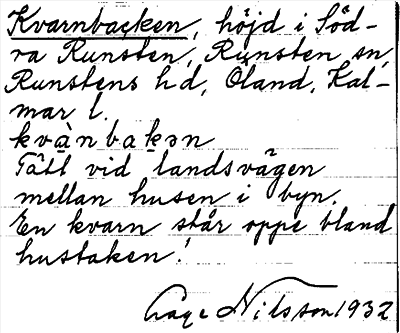 Kvarnbacken, höjd i Söd-
ra Runsten, Runsten sn,
Runstens hd, Öland, Kal-
mar l.
kvànbakən
Tätt vid landsvägen
mellan husen i byn.
En kvarn står oppe bland
hustaken!
Åage Nilsson 1932